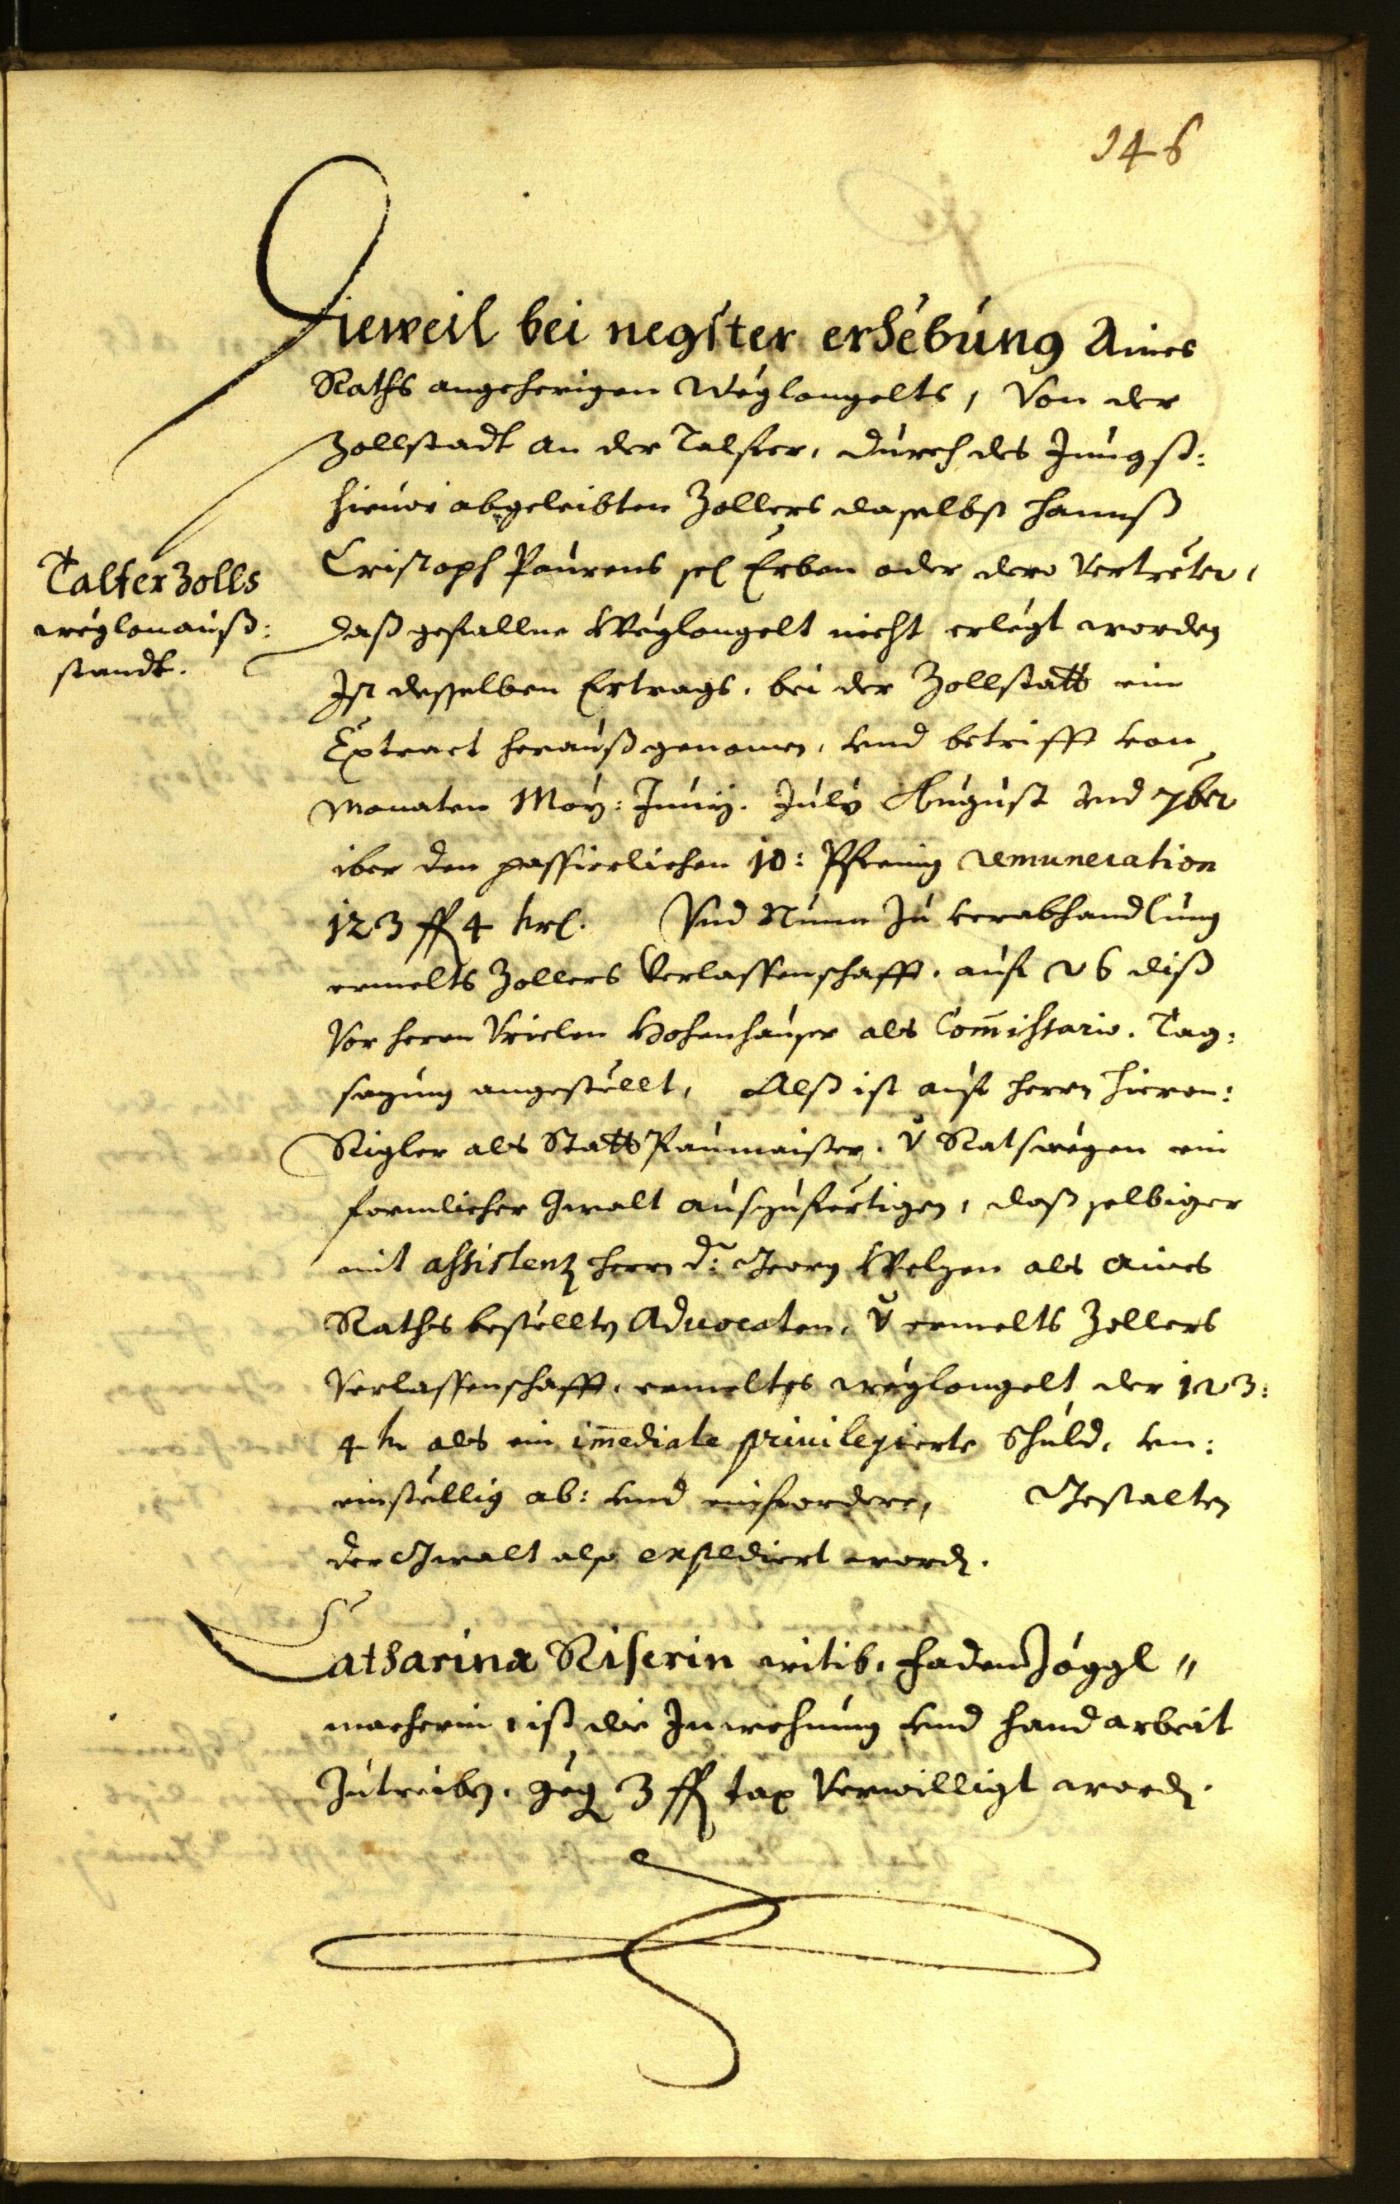 146
Dieweil bei negster erhebung Aines
Raths angeherigen Weglongelts, Von der
Zollstadt an der Talfer, durch des Jüngst:
hieuor abgeleibten Zollers daselbst hannß
Cristoph Paurens sel Erben oder dero Vertreter,
Talfer Zolls
weglonauß:
standt.
daß gefallne Weglongelt nicht erlegt worden
Ist desselben Ertrags, bei der Zollstatt ein
Extract heraußgenomen, vnd betrifft von
Monaten May: Junij. July August vnd 7ber
iber den passierlichen 10: Pfening remuneration
123 ff 4 kr. Vnd Nunn Zu verabhandlung
ermelts Zollers Verlassenschafft, auf 26 diß
Vor herrn Vrielen Hohenhauser als Commissario. Tag:
sazung angestellt, Alß ist auf herrn Hieron:
Rigler als Statt Paumaister. V Ratswegen ein
formlicher Gwalt außzufertigen, daß selbiger
mit assistenz herrn dr: Georg Welzen als aines
Raths bestellten Aduocaten, V ermelts Zollers
Verlassenschafft, ermeltes weglongelt der 123:
4 kr als ein imediate priuilegierte Schuld, vn:
einstellig ab: vnd einfordere, Gestalten
der Gwalt also expediert word.
Catharina Riserin witib, faden Jöggl"
macherin, ist die Inwohnung vnd handarbeit
Zutreiben, geg 3 ff tax Verwilligt word.